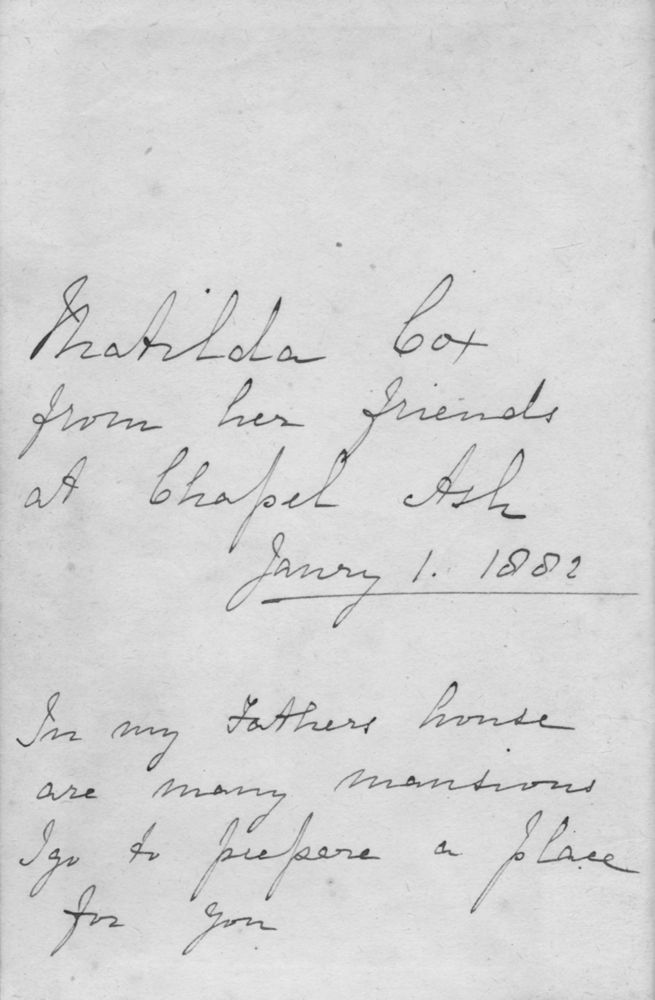 Matilda Cox
from her friends
at Chapel Ash
Janry 1. 1882
In my Fathers house
are many mansions
I go to prepare a place
for you